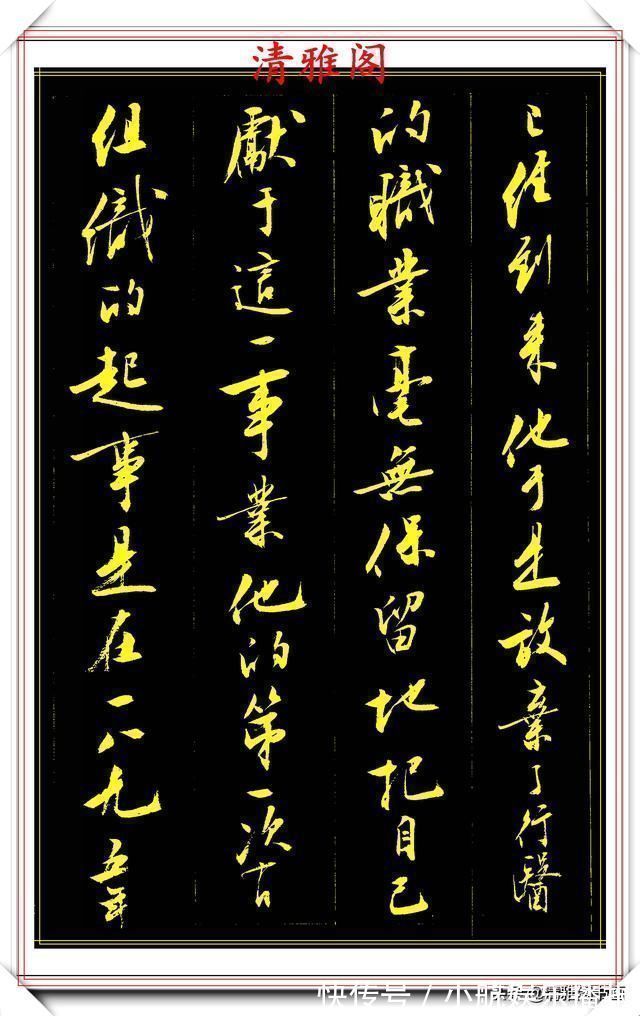 清雅阁
已经到来他于是放棄了行醫
的職業毫無保留地把自己
獻于這一事業他的第一次有
组織的起事是在一八九五年
快传号 /